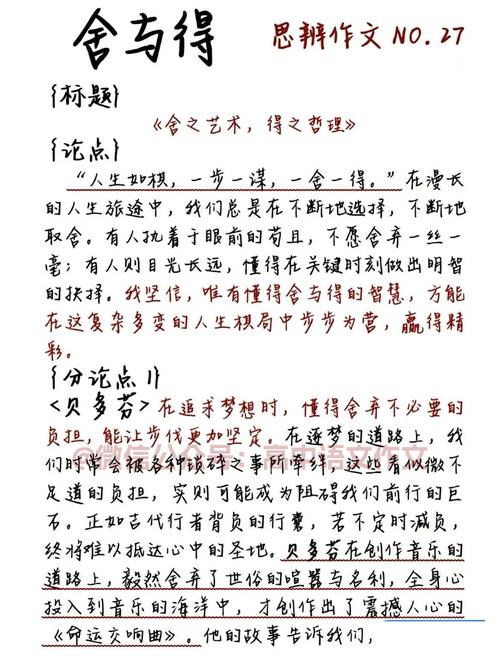 舍与得 思辨作文 NO.27
{标题}
《舍之艺术，得之哲理》
{论点}
“人生如棋，一步一谋，一舍一得。”在漫长
的人生旅途中，我们总是在不断地选择，不断地
取舍。有人执着于眼前的苟且，不愿舍弃一丝一
毫；有人则目光长远，懂得在关键时刻做出明智
的抉择。我坚信，唯有懂得舍与得的智慧，方能
在这复杂多变的人生棋局中步步为营，赢得精
彩。
{分论点1}
<贝多芬>在追求梦想时，懂得舍弃不必要的
负担，能让步伐更加坚定。在逐梦的道路上，我
们时常会被各种琐碎之事所牵绊，这些看似微不
@微信公众号：高中语文作文
足道的负担，实则可能成为阻碍我们前行的巨
石。正如古代行者背负的行囊，若不定时减负，
终将难以抵达心中的圣地。贝多芬在创作音乐的
道路上，毅然舍弃了世俗的喧嚣与名利，全身心
投入到音乐的海洋中，才创作出了震撼人心的
《命运交响曲》。他的故事告诉我们，